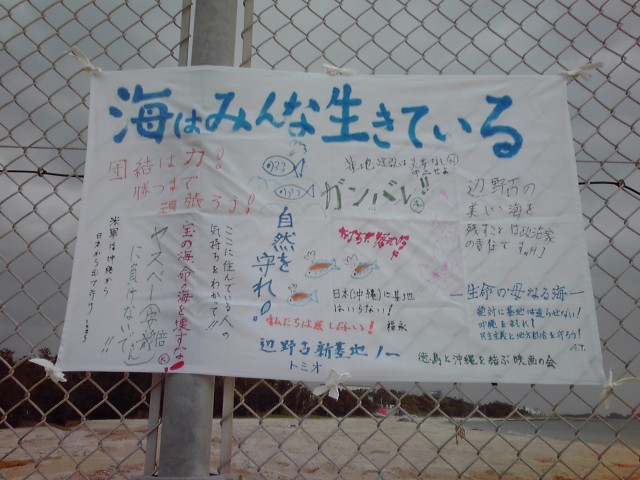 海はみんな生きている
団結は力!
勝つまで
頑張ろう!
基地建設は
ガンバレ!!
辺野古の
美しい海を
残すことは政治家
の責任です。
自然を守れ!
ここに住んでいる人の
気持ちをわかて!!
宝の海、命の海を壊すな!
ヤスベー(安倍)
に負けないでぇ
米軍は沖縄から
日本から出て行け
日本(沖縄)に基地
はいらない!
私たちは屈しない!
福永
辺野古新基地ノー
トミオ
ー生命の母なる海ー
絶対に基地は造らせない!
沖縄を
民主主義と地方自治を守ろう!
徳島と沖縄を結ぶ映画の会